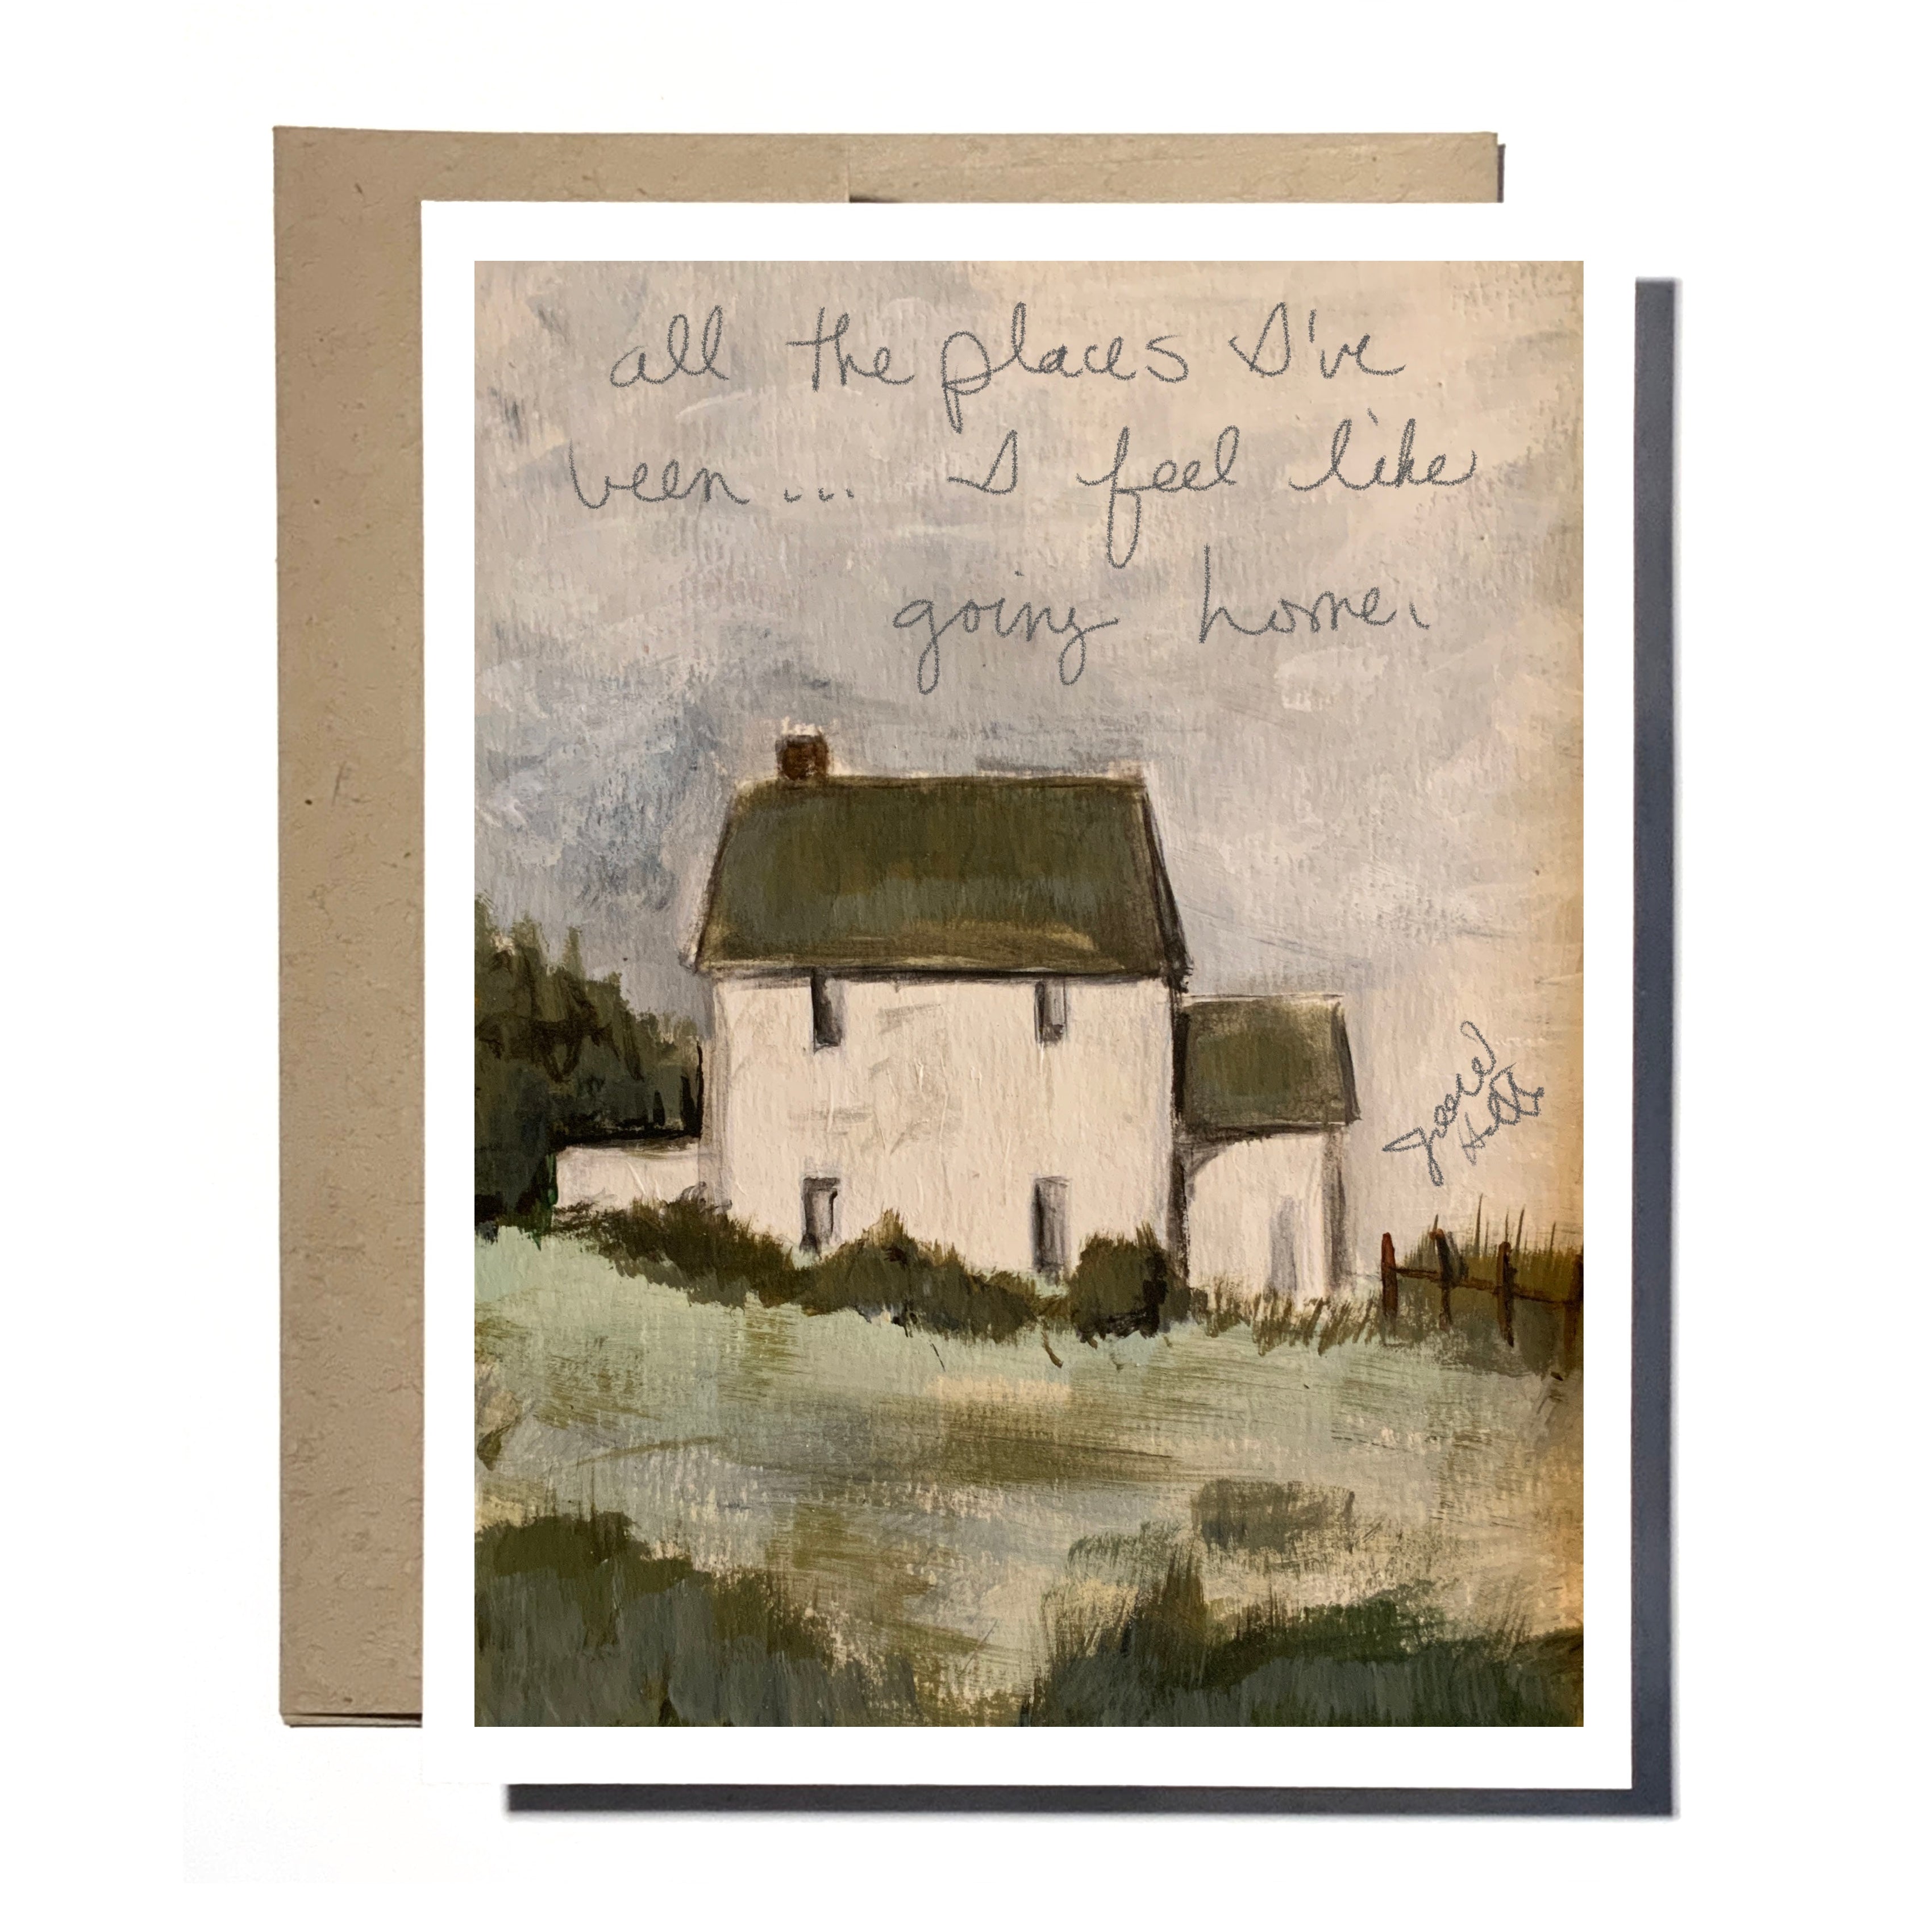 all the places I've
been... I feel like
going home.